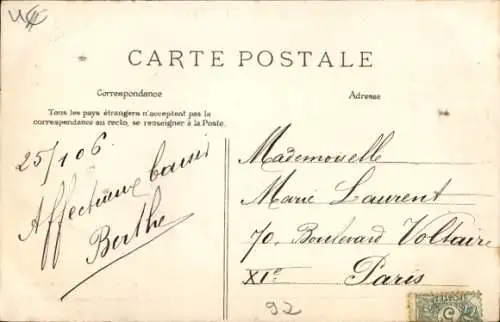 CARTE POSTALE
Correspondance
Tous les pays étrangers n'acceptent pas la
correspondance au recto, se renseigner à la Poste.
25/1 06
Affectueux baisers
Berthe
Adresse
Mademoiselle
Marie Laurent
70, Boulevard Voltaire
XIe Paris
92